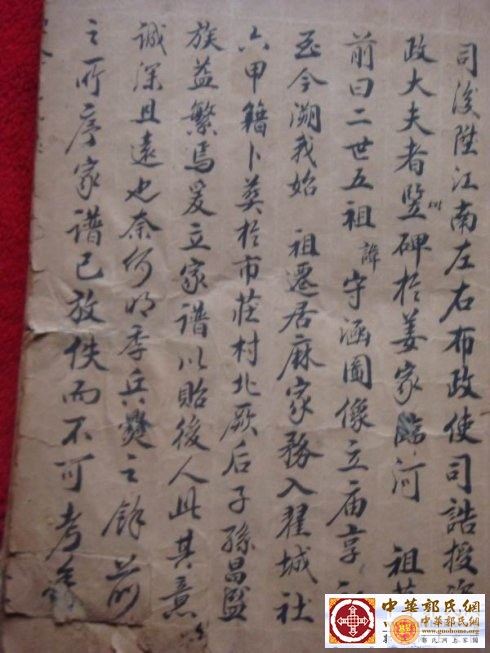 司後陞江南左右布政使司誥授資
政大夫者竪碑於姜家臨河 祖
前曰二世五祖諱守涵圖像立廟享
至今溯我始 祖遷居麻家務入翟城社
六甲籍卜葬於市莊村北厥后子孫昌盛
族益繁焉爰立家譜以貽後人此其意
誠深且遠也奈何明季兵燹之餘前
之所序家譜已放佚而不可考矣
中華郭氏網
中華郭氏網
www.guohome.org